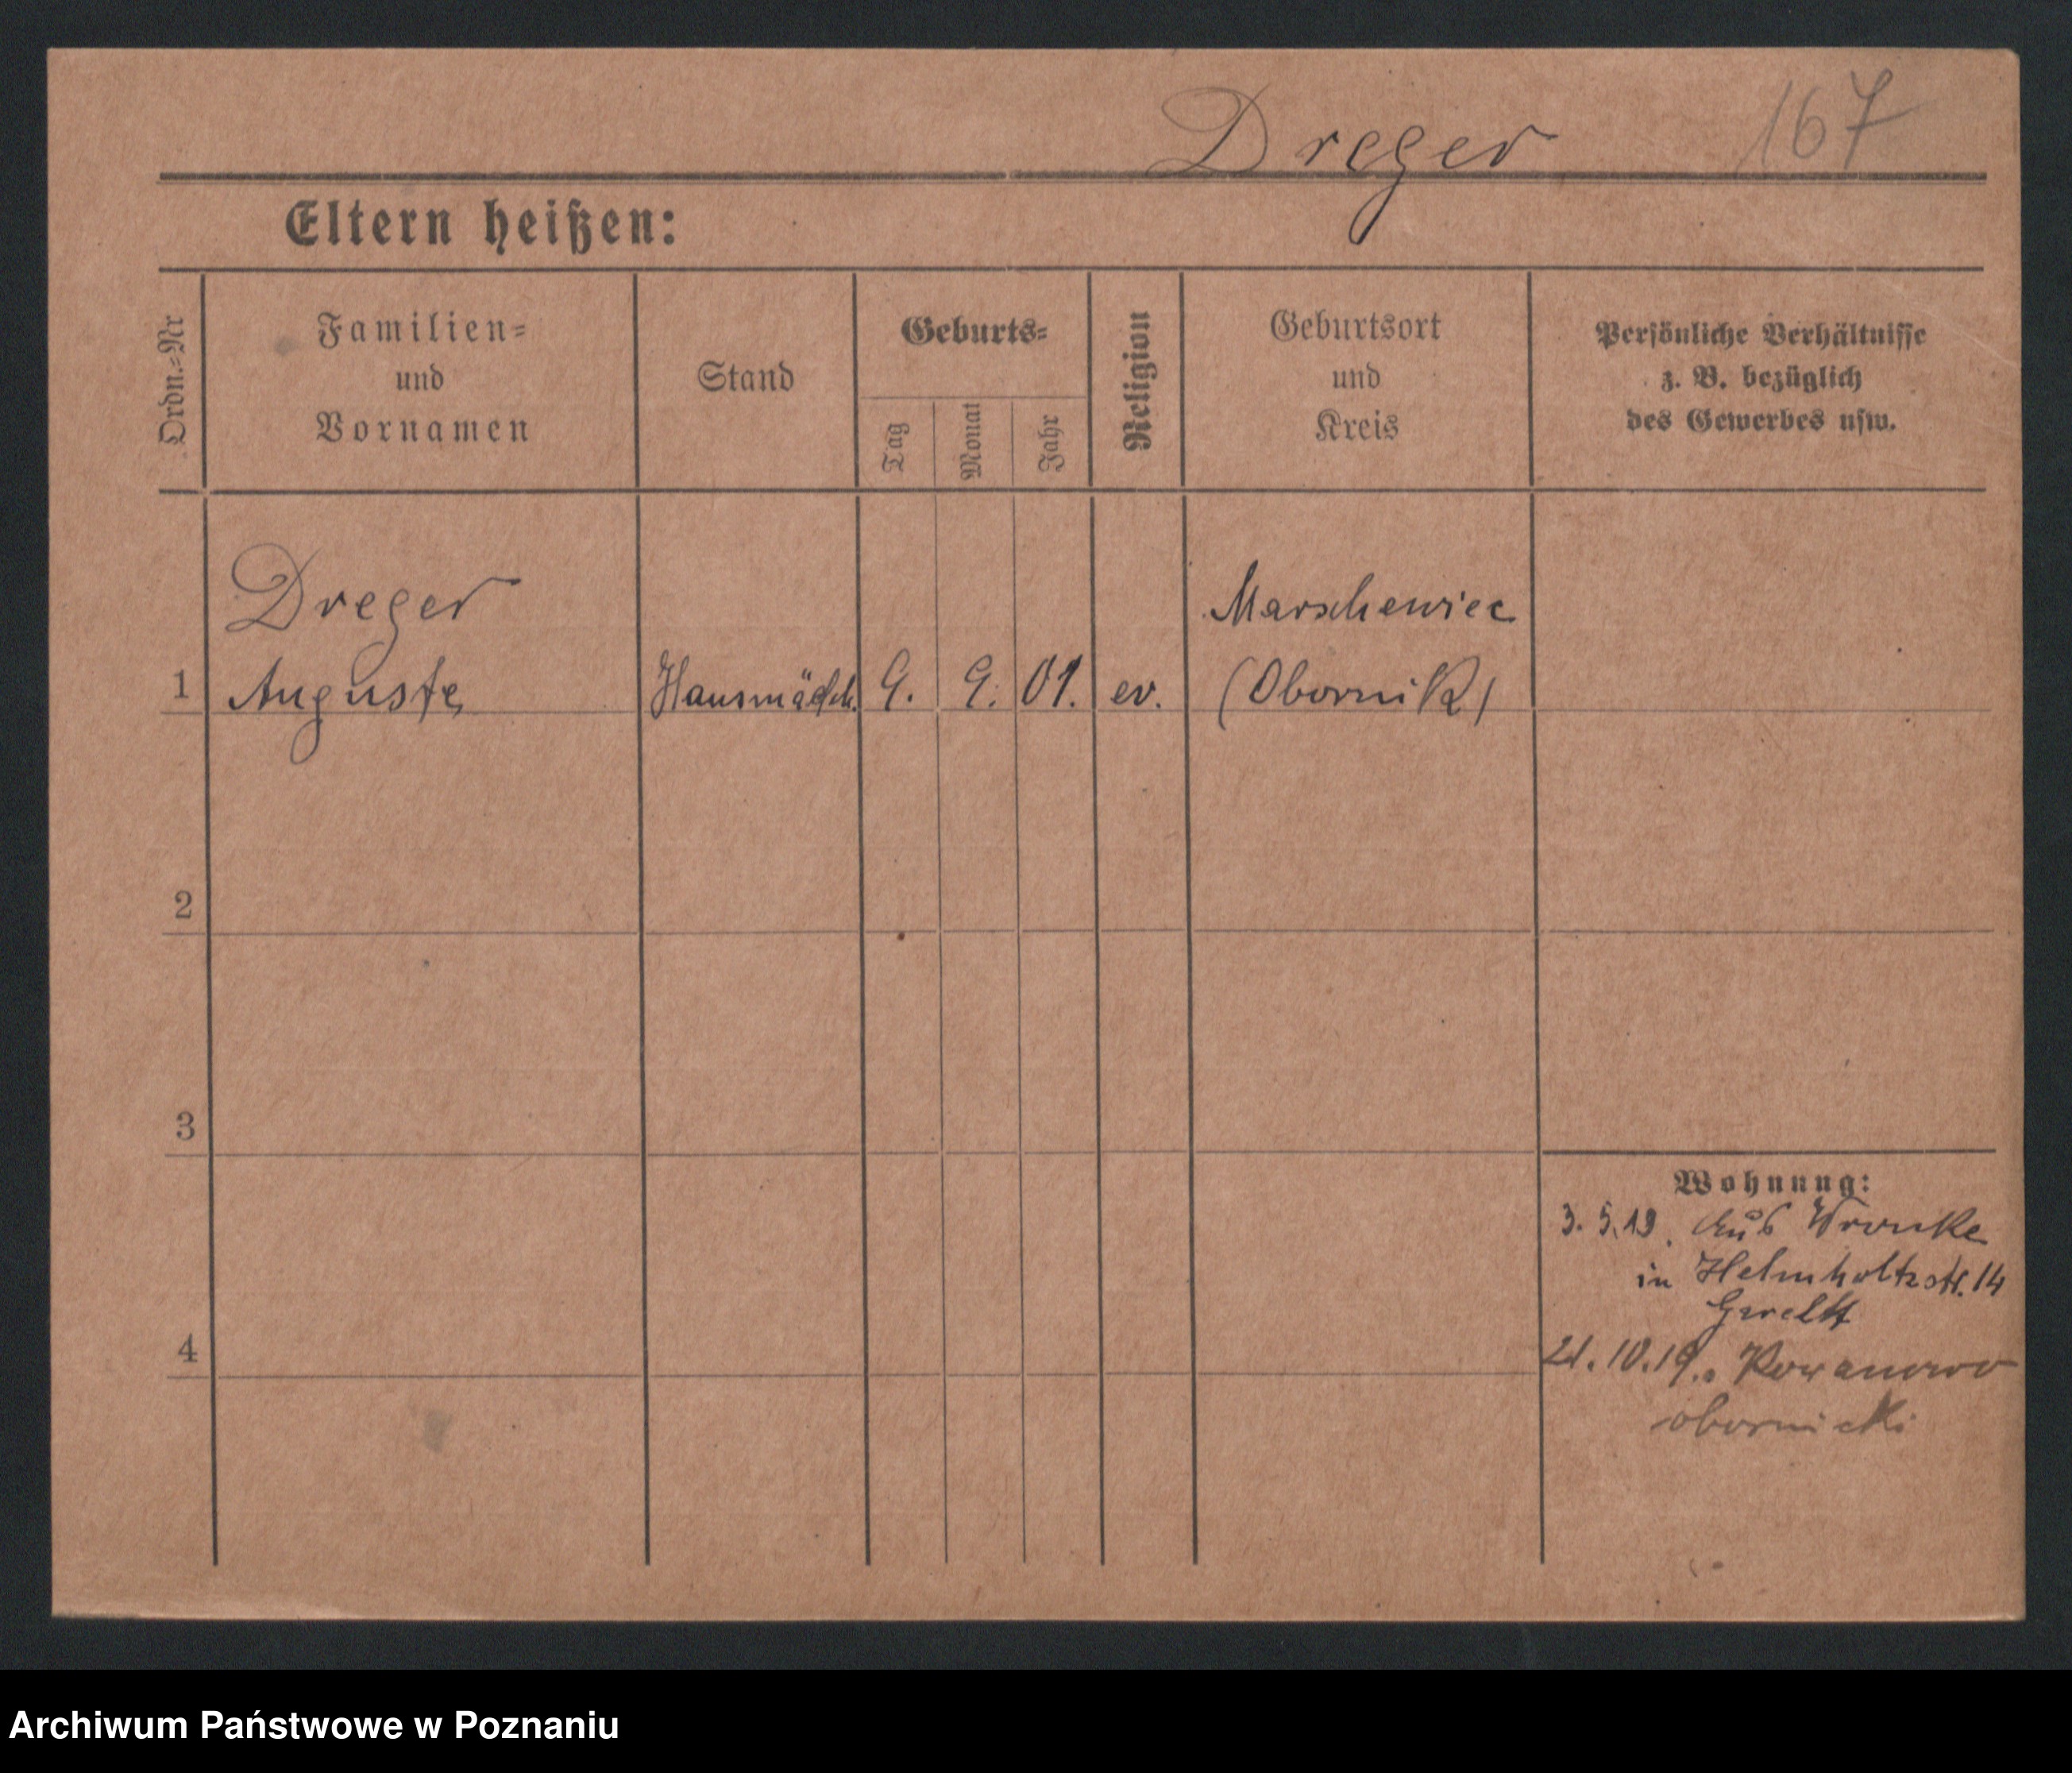 Dreger 167
Eltern heißen:
Ordn.-Nr
Familien-
und
Vornamen
Stand
Geburts-
Tag
Monat
Jahr
Religion
Geburtsort
und
Kreis
Persönliche Verhältnisse
z. B. bezüglich
des Gewerbes usw.
Dreger Marschewiec
1 Auguste Hausmädch. 9. 9. 01. ev. (Obornik)
2
3
Wohnung:
3. 5. 19. Aus Wronke
in Helmholtzstr. 14
4
21. 10. 19. Rowanowo
obornicki
Archiwum Państwowe w Poznaniu